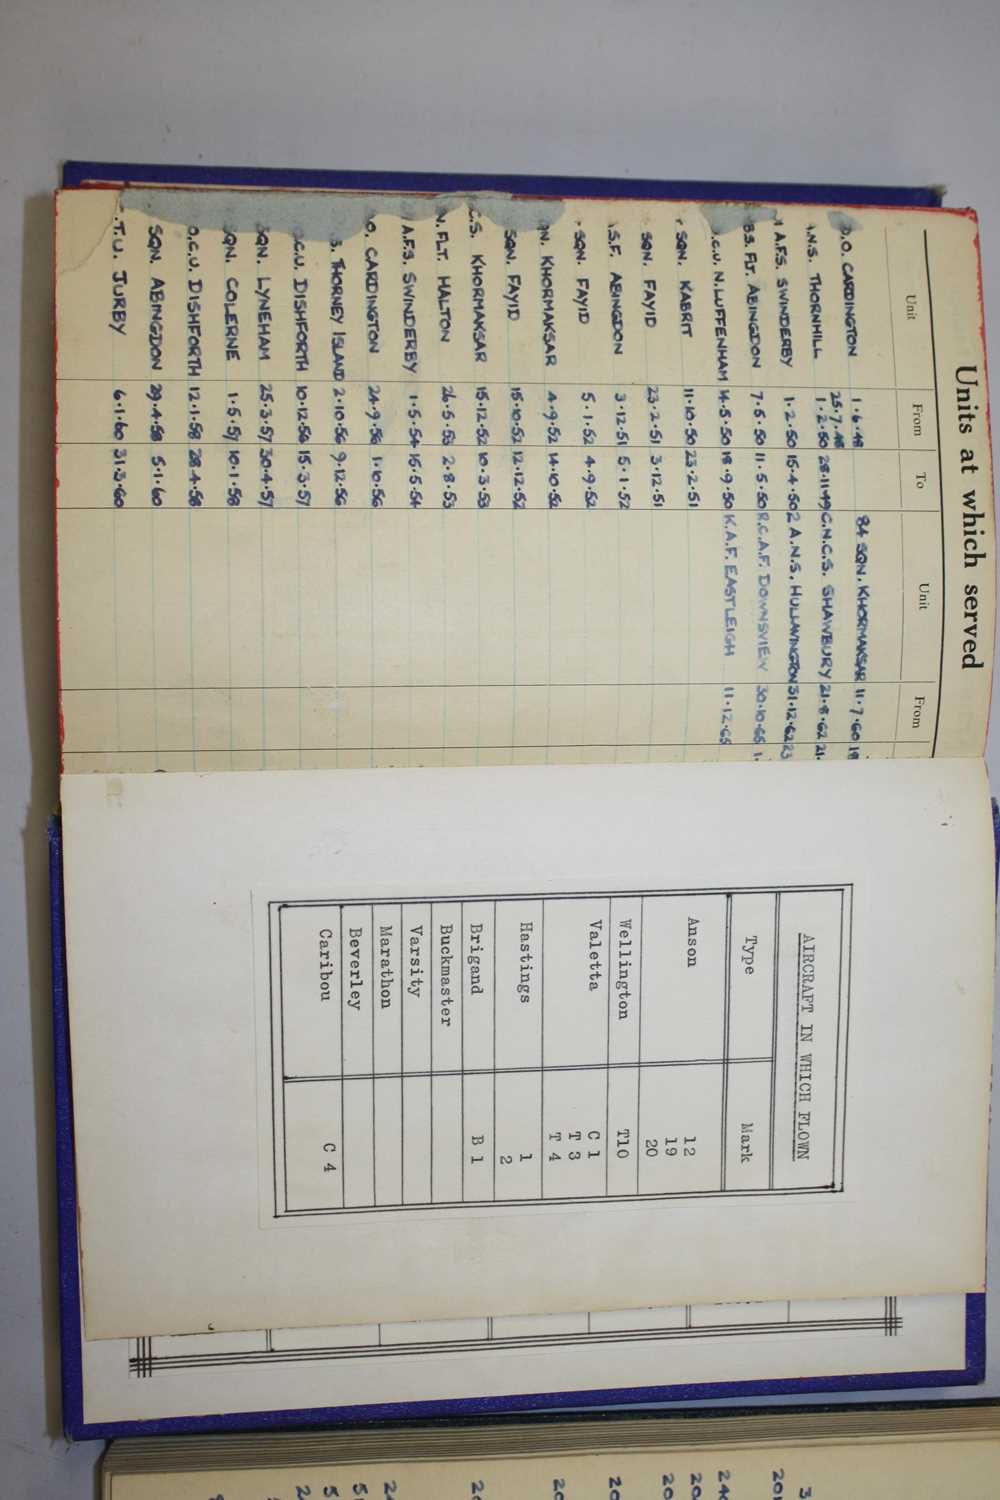 Units at which served
Unit From To Unit From
D.O. CARDINGTON 1·6·48 84 SQN. KHORMAKSAR 11·7·60
25·7·48
A.N.S. THORNHILL 1·2·50 28·11·49 C.N.C.S. SHAWBURY 21·8·62 21·
A.F.S. SWINDERBY 1·2·50 15·4·50 2 A.N.S. HULLAVINGTON 31·12·62 23
FLT. ABINGDON 7·5·50 11·5·50 R.C.A.F. DOWNSVIEW 30·10·65 1·
.C.U. N. LUFFENHAM 14·5·50 18·9·50 K.A.F. EASTLEIGH 11·12·65
SQN. KABRIT 11·10·50 23·2·51
SQN. FAYID 23·2·51 3·12·51
.S.F. ABINGDON 3·12·51 5·1·52
SQN. FAYID 5·1·52 4·9·52
QN. KHORMAKSAR 4·9·52 14·10·52
SQN. FAYID 15·10·52 12·12·52
C.S. KHORMAKSAR 15·12·52 10·3·53
N. FLT. HALTON 26·5·53 2·8·53
A.F.S. SWINDERBY 1·5·54 16·5·54
O. CARDINGTON 24·9·56 1·10·56
S. THORNEY ISLAND 2·10·56 9·12·56
O.C.U. DISHFORTH 10·12·56 15·3·57
SQN. LYNEHAM 25·3·57 30·4·57
SQN. COLERNE 1·5·57 10·1·58
O.C.U. DISHFORTH 12·1·58 28·4·58
SQN. ABINGDON 29·4·58 5·1·60
.T.U. JURBY 6·1·60 31·3·60
AIRCRAFT IN WHICH FLOWN
Type Mark
Anson 12
19
20
Wellington T10
Valetta C 1
T 3
T 4
Hastings 1
2
Brigand B 1
Buckmaster
Varsity
Marathon
Beverley
Caribou C 4